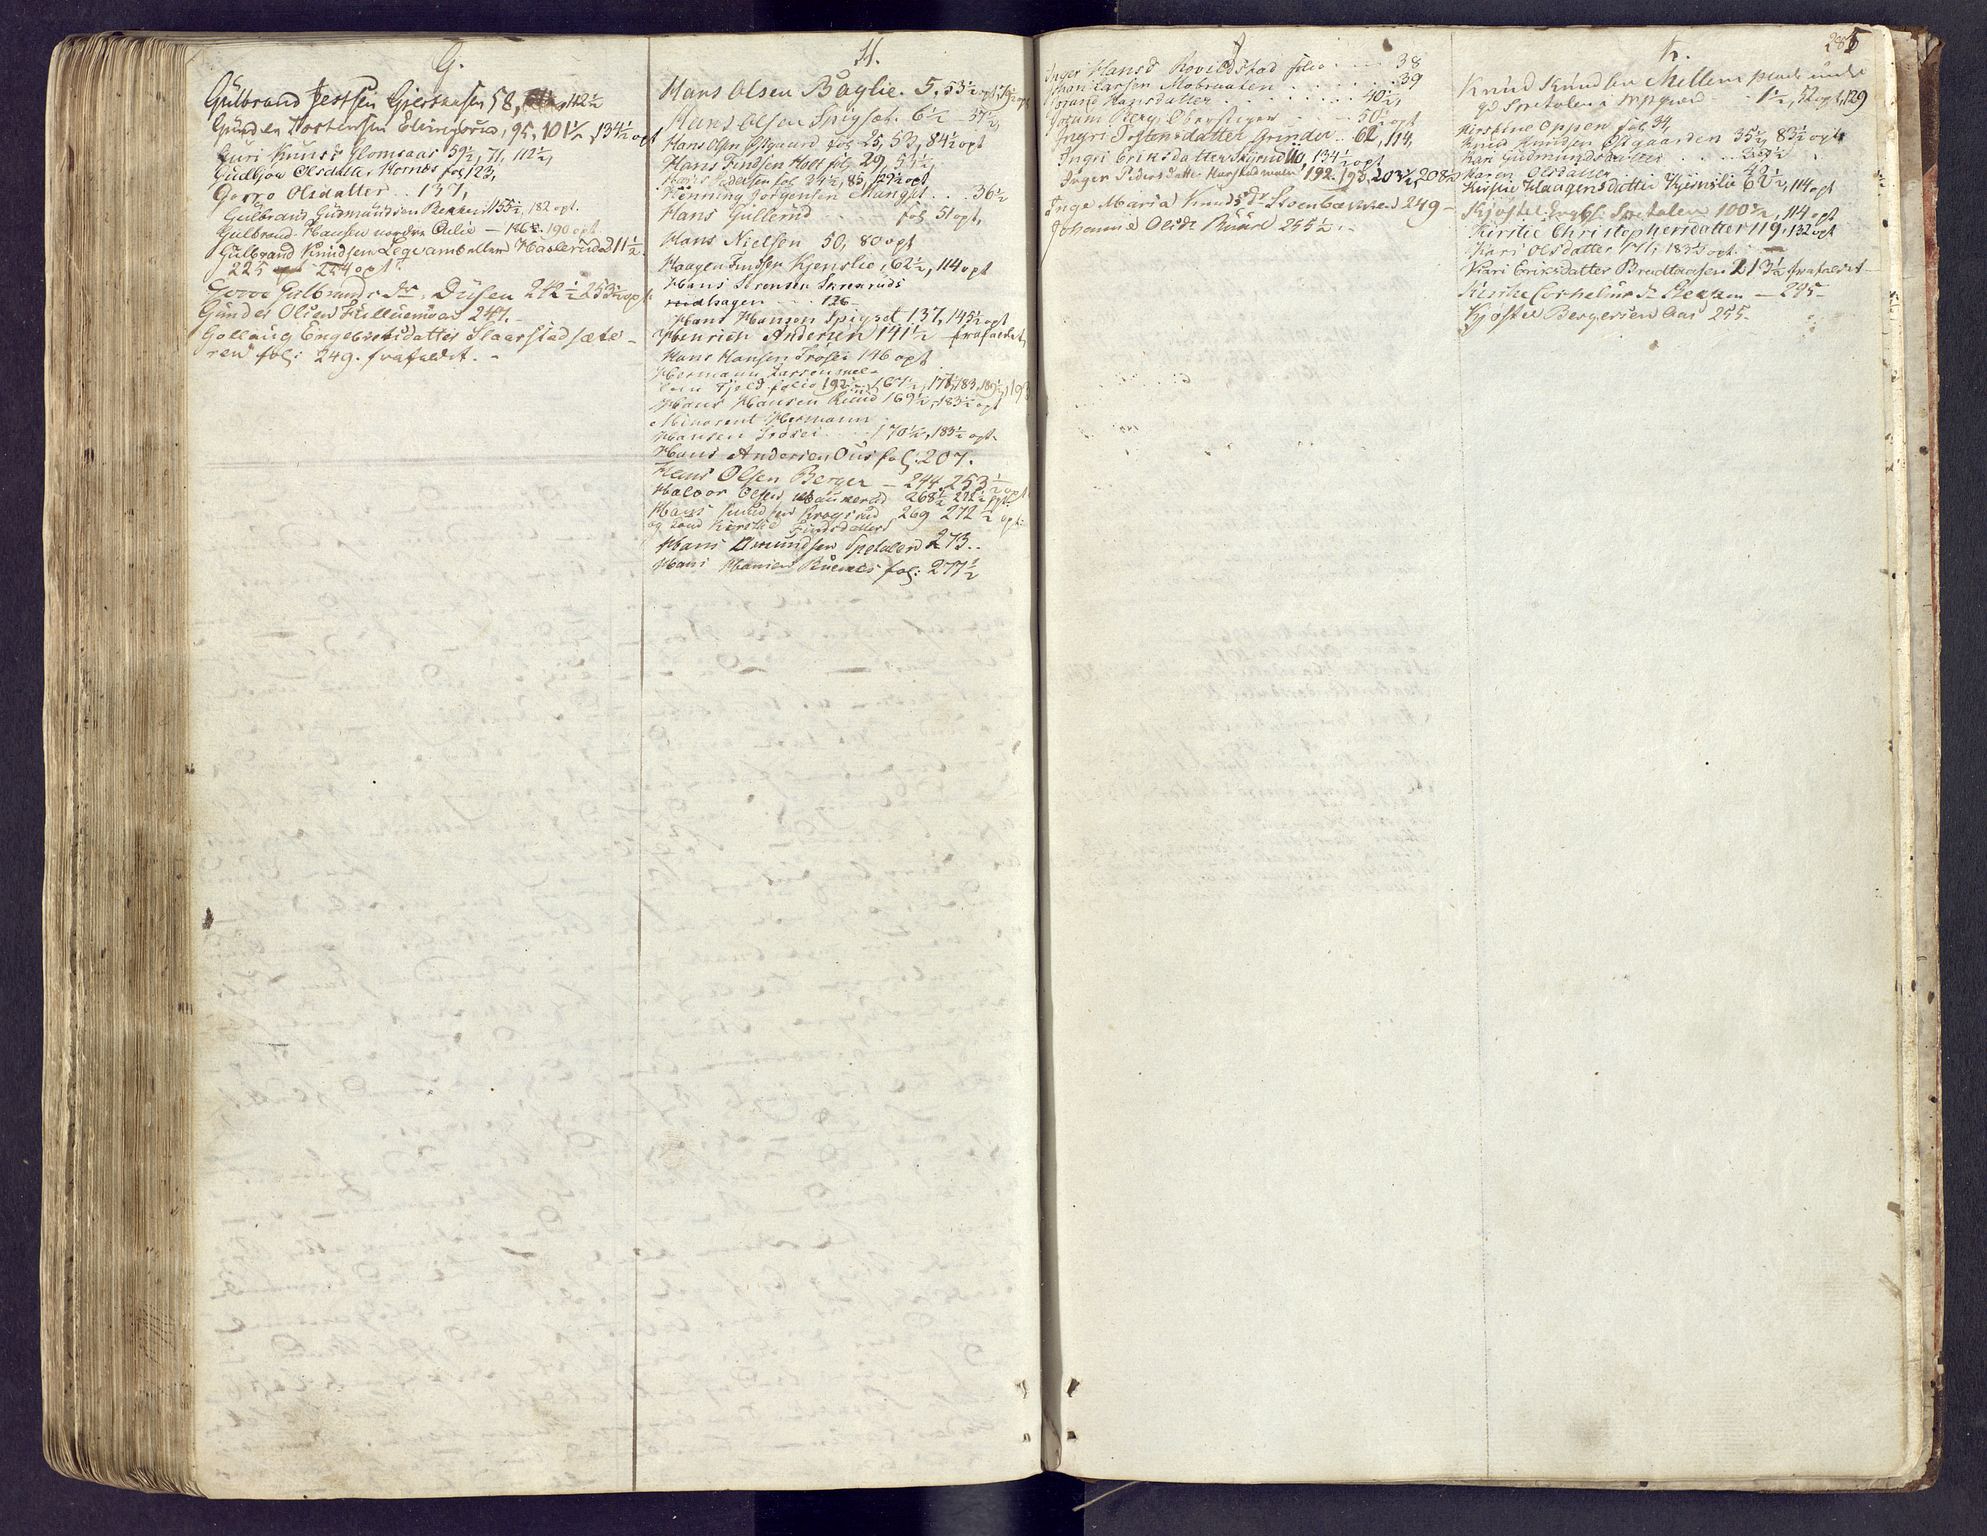 G.
Gulbrand Jestsen Gjersaasen 58, 112½
Gunder Tostensen 95, 101½, 134½ opt
Guri Knuds Glomsaas 59½, 71, 112½,
Gudgow Olsdatter Hornæs fol 123,
Gorro Olsdatter . . 137,
Gulbrand Gudmundsen Bekken 155½, 182 opt.
Gulbrand Hansen nordre Oulie — 186½ 190 opt
Gulbrand Knudsen Haslerud 211½
225 224 opt.
Gulbrands Dr. Dusen 242½ 253½ opt.
Gunder Olsen 247. —
Gollaug Engebretsdatter Slaarstadsæte-
ren fol: 249. frafaldet. —
H.
Hans Olsen Baglie. 5, 53½ opt
Hans Olsen Spigset. 6½ — 37½,
Hans Olsen Østgaard fol 25, 53, 84½ opt
Hans Findsen Holt fol 29, 53½,
Hans Pedersen fol 34½, 85, 129½ opt
Henning Jørgensen Manget . . 36½
Hans Gullerud fol 51 opt,
Hans Nielsen 50, 80 opt
Haagen Findsen Kjenslie, 62½, 114 opt
Hans Sörensen Skreruds
hagen — 126 —
Hans Hansen Spigset 137, 145½ opt
Henrich Andersen 141½ frafaldet,
Hans Hansen Trösei 146 opt
Hermann Larsen mel-
lem Fjeld folio 192½, 167½, 178, 183, 189½, 193
Hans Hansen Ruud 169½, 183½ opt
Minorent Hermann
Hansen Trösei . . . 170½, 183½ opt.
Hans Andersen Ous fol: 207.
Hans Olsen Berger — 244, 253½ opt
Halvor Olsen Haukerud 268½ 272½ opt
Hans Knudsen Krogsrud 269 272½ opt.
og Kone Kirstie Findsdatter
Hans Amundsen Spetalen 273. .
Hans Hansen Ruenæs fol: 277½
J
Inger Hansd Rovildstad folio . . . . 38
Johan Larsen Mobraaten . . . . . . . 39
Jorand Hansdatter . . . . . . . 40½,
Joram Berg, Obersteger — — 50½ opt
Ingri Tostensdatter Grinder . . 62, 114,
Ingri Eriksdatter Skjrud 110, 134½ opt
Inger Pedersdatter Harstadmoen 192. 193, 203½, 208½
Inge Maria Knuds Dr Steenbækken 249 —
Johanne Olsdr Ruud 255½ . .
K.
285
Knud Knudsen Mellem plads under
gd Spetalen i Grue 1½, 52 opt, 129
Kirstine Oppen fol 34,
Knud Knudsen Østgaarden 35½, 83½ opt
Kari Gudmundsdatter . . . . 39½
Karen Olsdatter . . . . 42½
Kirstie Haagensdatter Kjernslie 62½, 114 opt
Kjøstel Engbl. Spetalen 100½, 114 opt
Kirstie Christophersdatter 119, 132 opt
Kari Olsdatter 171, 183½ opt
Kari Eriksdatter Bradtaasen 213½ frafaldet —
Kirstie Cornelius Dr Bekken — 245 —
Kjøstel Bergersen Aas 255 —